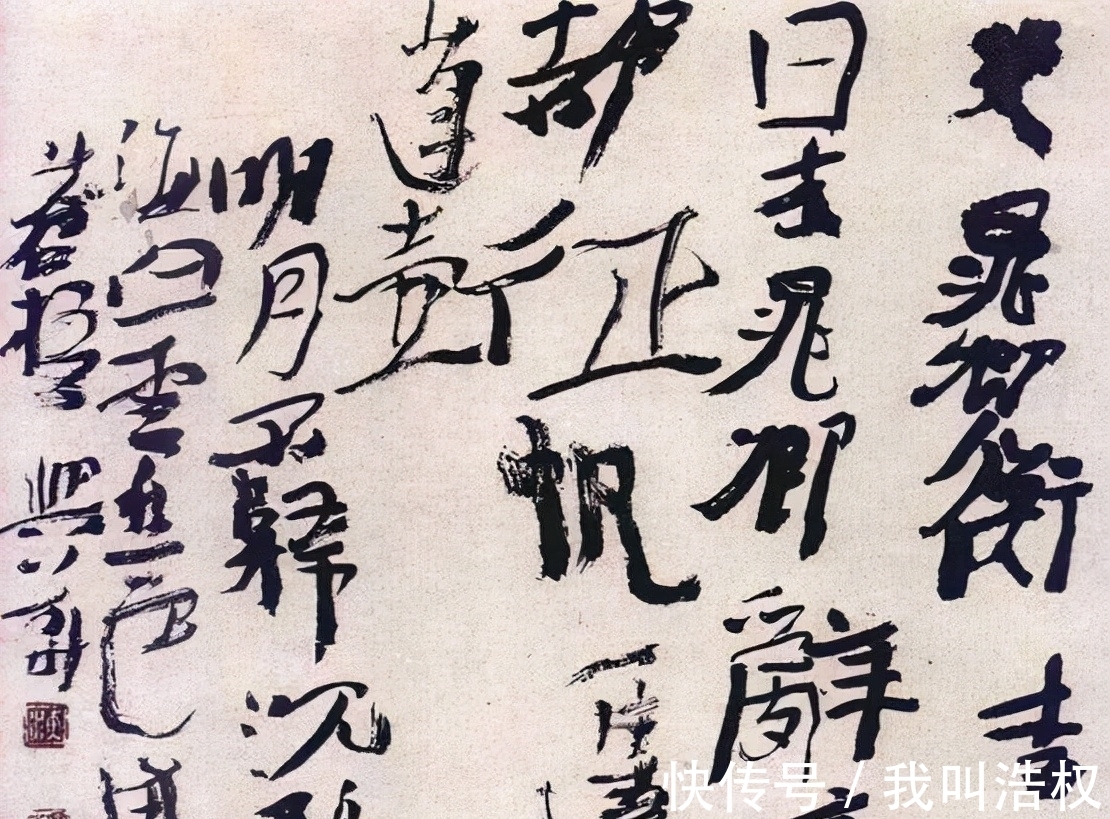 哭晁卿衡
日本晁卿辭
都征帆一片
蓬壺
明月不歸沉碧
海白雲愁色滿
蒼梧
快传号 / 我叫浩权